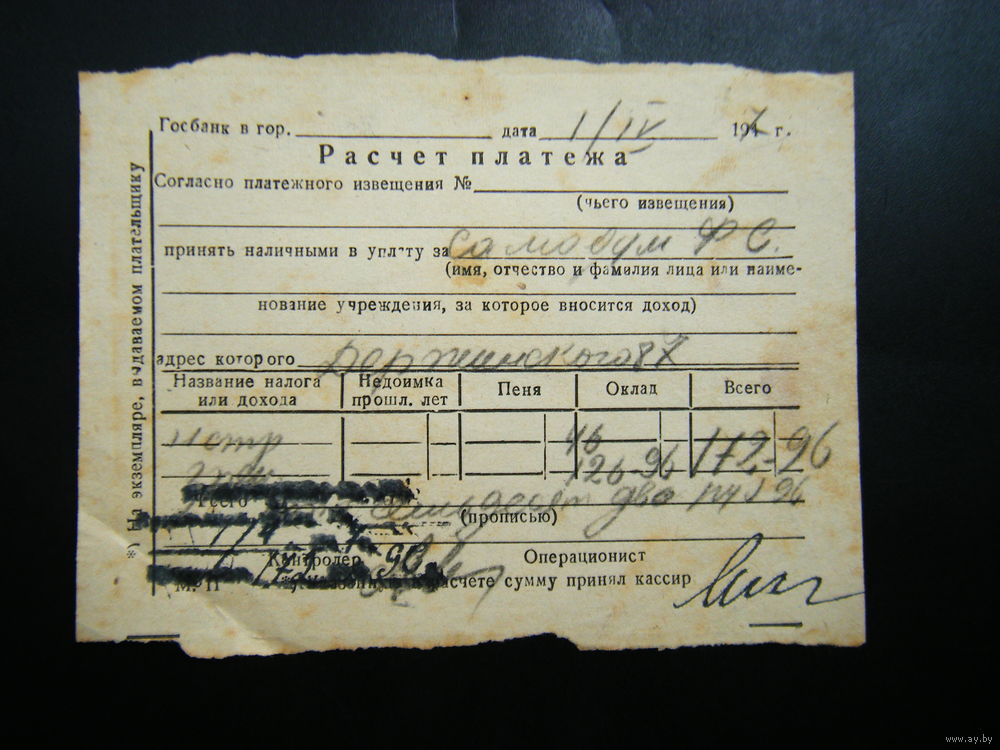 Госбанк в гор. дата 1/IV 194 г.
Расчет платежа
Согласно платежного извещения №
(чьего извещения)
принять наличными в уплату за Самодум Ф С.
(имя, отчество и фамилия лица или наиме-
нование учреждения, за которое вносится доход)
адрес которого
Название налога или дохода Недоимка прошл. лет Пеня Оклад Всего
46
126-96 172-96
Всего семьдесят два руб 96
(прописью)
Контролер Операционист
М. П расчете сумму принял кассир
*) На экземпляре, выдаваемом плательщику
www.ay.by